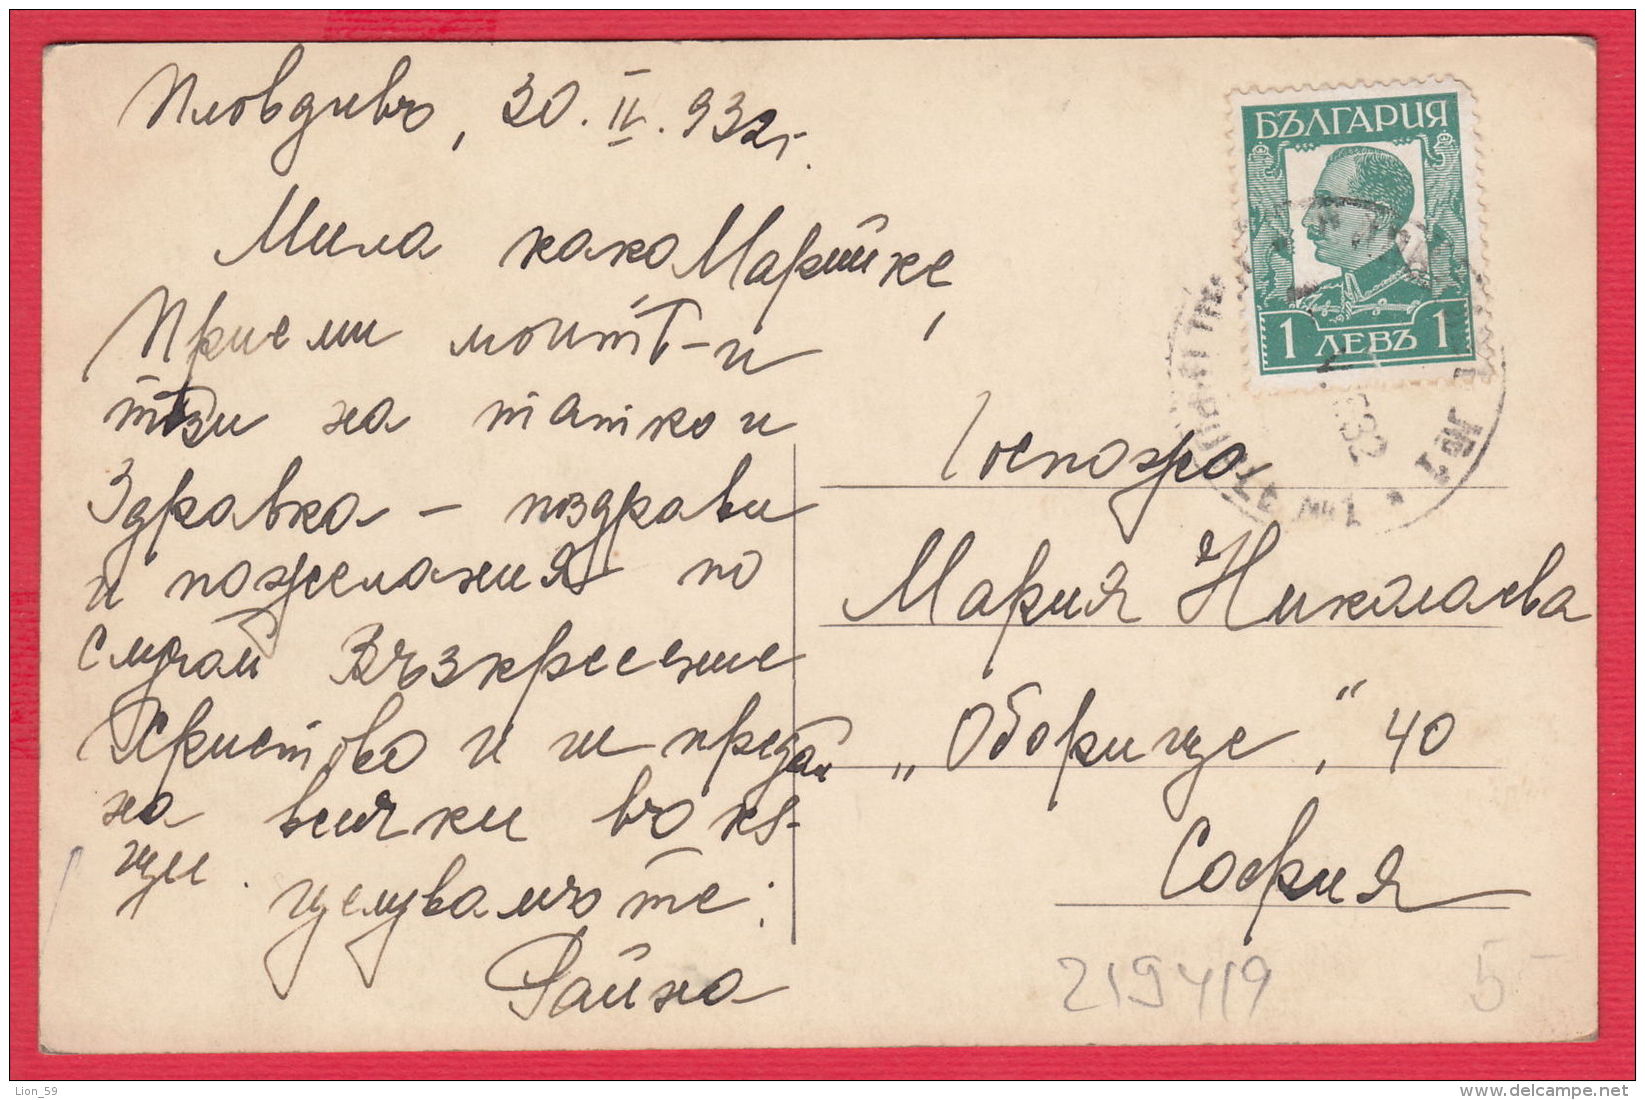 Пловдивъ, 30. IV. 932 г.
Мила како Марийке,
Приеми моитѣ-и
тѣзи на татко и
Здравка - поздрави
и пожелания по
случай Възкресение
Христово и ги предай
на всички въ кѫ-
щи. Целувамъ те:
Райна
БЪЛГАРИЯ
1 ЛЕВЪ 1
Госпожа
Мария Николаева
„Оборище", 40
София
219419
5-
Lion_59
www.delcampe.net